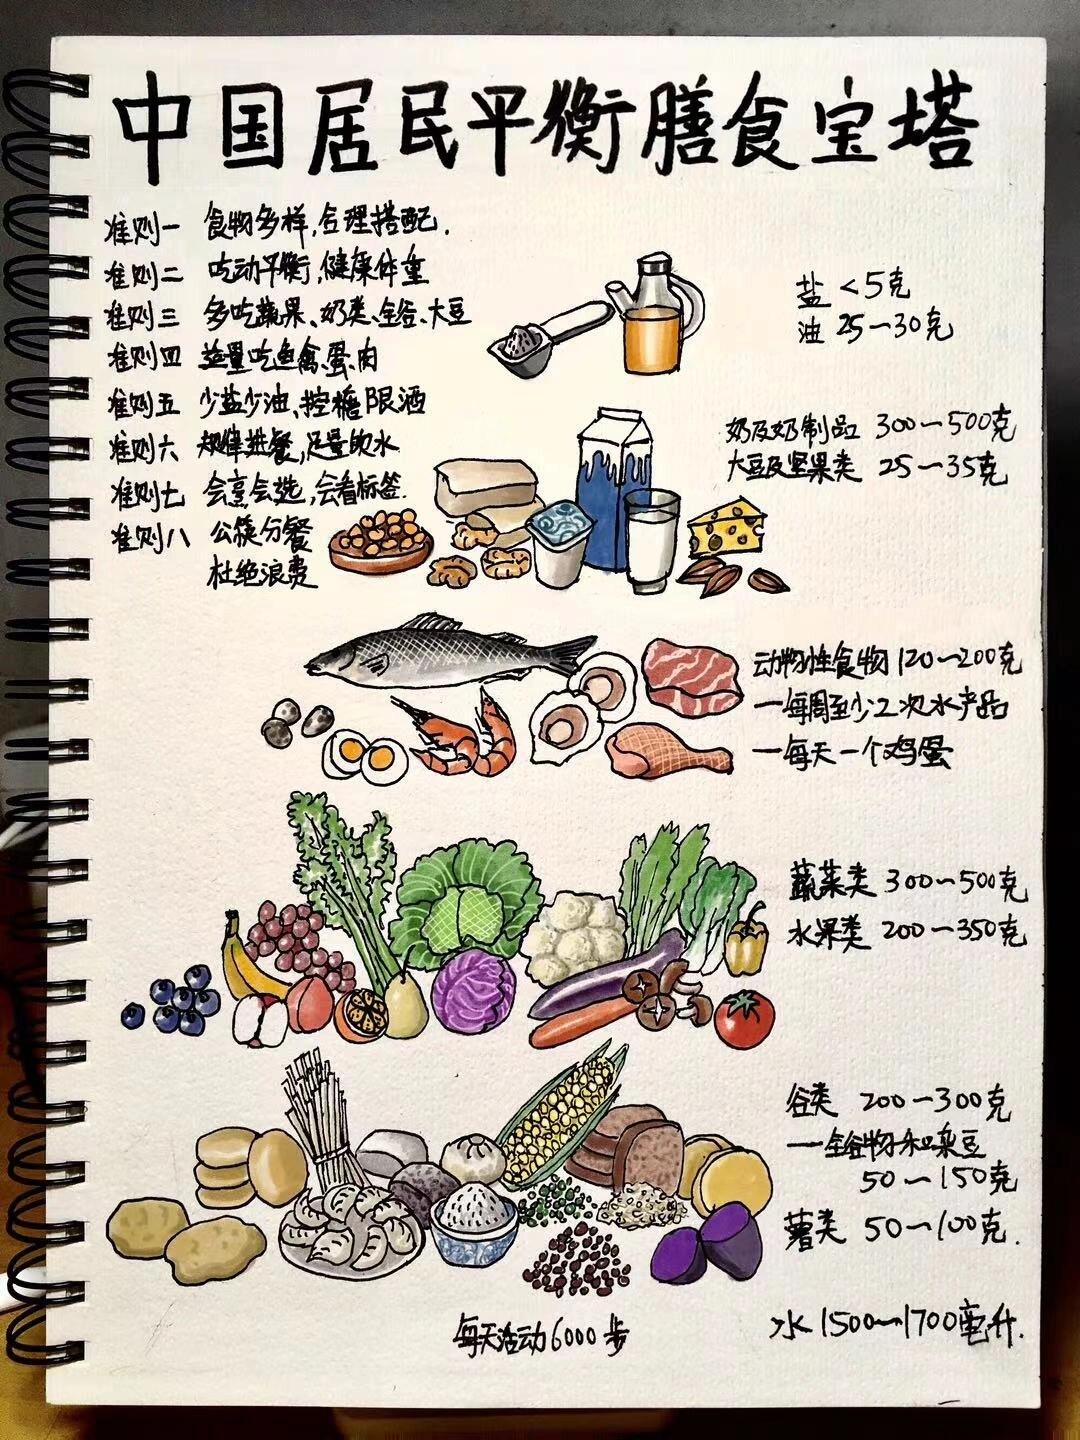 中国居民平衡膳食宝塔
准则一 食物多样,合理搭配.
准则二 吃动平衡,健康体重
准则三 多吃蔬果、奶类、全谷、大豆
准则四 适量吃鱼禽、蛋、肉
准则五 少盐少油、控糖限酒
准则六 规律进餐,足量饮水
准则七 会烹会选,会看标签.
准则八 公筷分餐
杜绝浪费
盐 <5克
油 25—30克
奶及奶制品 300—500克
大豆及坚果类 25—35克
动物性食物 120—200克
—每周至少2次水产品
—每天一个鸡蛋
蔬菜类 300—500克
水果类 200—350克
谷类 200—300克
—全谷物和杂豆
50—150克
薯类 50—100克.
每天活动6000步
水 1500—1700毫升.